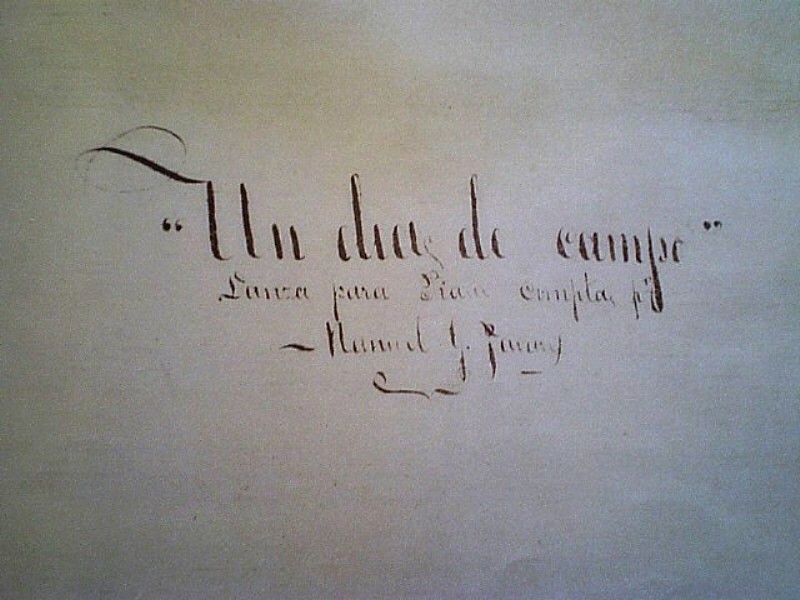 “Un dia de campo”
Danza para Piano compta pr
Manuel G. Tavarez